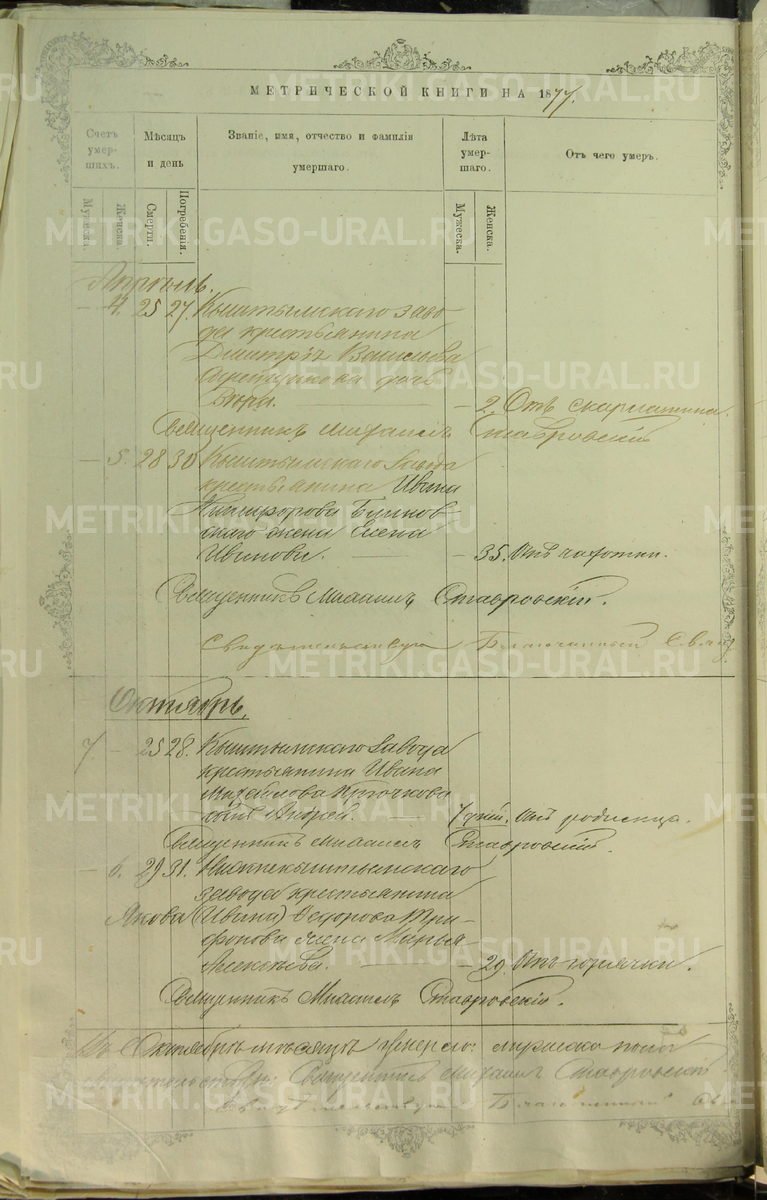 МЕТРИЧЕСКОЙ КНИГИ НА 1877.
Счет умерших.
Мѣсяцъ и день
Званіе, имя, отчество и фамилія умершаго.
Лѣта умершаго.
Отъ чего умеръ.
Мужеска.
Женска.
Смерти.
Погребенія.
Мужеска.
Женска.
Апрѣль.
— 4. 25 27. Кыштымскаго заво-
да крестьянина
Димитрія Васильева
дочь
Вѣры. — 2. Отъ скарлатина.
Священникъ Михаилъ Ставровскій
— 5. 28 30 Кыштымскаго Завода
крестьянина Ивана
Никифорова
жена Елена
Иванова. — 35. Отъ чахотки.
Священникъ Михаилъ Ставровскій.
Свидетельствую Благочинный
Октябрь.
7 — 25 28. Кыштымскаго Завода
крестьянина Ивана
Михайлова Крючкова
сынъ Андрей. — 7 дней. Отъ родимца.
Священникъ Михаилъ Ставровскій.
— 6. 29 31. Нижнекыштымскаго
завода крестьянина
Якова (Ивана) Федорова Три-
фонова жена Марья
Алексѣева. — 29. Отъ горячки.
Священникъ Михаилъ Ставровскій.
Въ Октябрѣ мѣсяцѣ умерло: мужеска пола
Священникъ Михаилъ Ставровскій
Благочинный
METRIKI.GASO-URAL.RU